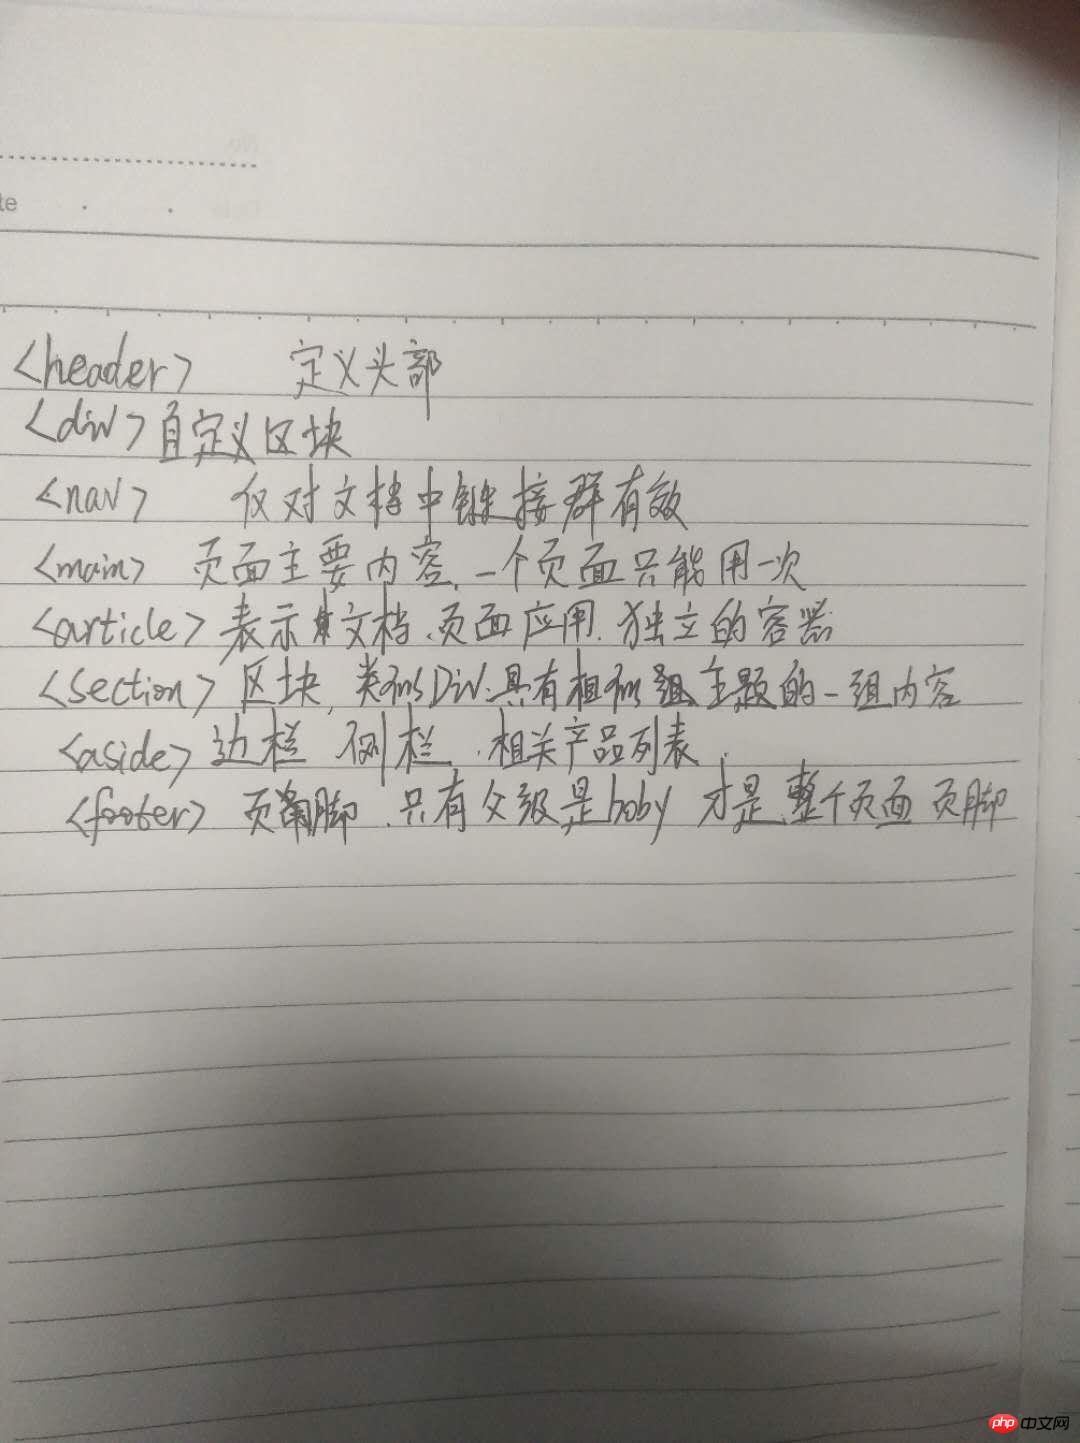 te
<header> 定义头部
<div> 自定义区块
<nav> 仅对文档中链接群有效
<main> 页面主要内容，一个页面只能用一次
<article> 表示文档、页面应用、独立的容器
<section> 区块，类似Div、具有相似主题的一组内容
<aside> 边栏 侧栏、相关产品列表、
<footer> 页脚、只有父级是boby 才是整个页面页脚
php 中文网